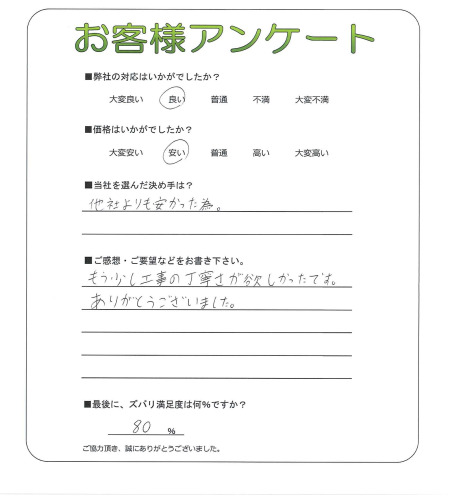 お客様アンケート
■弊社の対応はいかがでしたか？
大変良い 良い 普通 不満 大変不満
■価格はいかがでしたか？
大変安い 安い 普通 高い 大変高い
■当社を選んだ決め手は？
他社よりも安かった為。
■ご感想・ご要望などをお書き下さい。
もう少し工事の丁寧さが欲しかったです。
ありがとうございました。
■最後に、ズバリ満足度は何%ですか？
80 %
ご協力頂き、誠にありがとうございました。